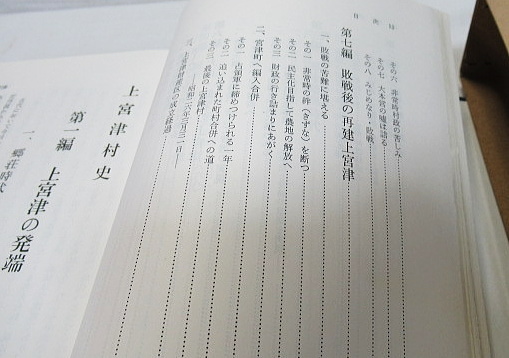 目次
その六 非常時村政の苦しみ
その七 大本営の嘘は語る
その八 みじめなり・敗戦
第七編 敗戦後の再建上宮津
一、敗戦の苦難に堪える
その一 非常時の絆（きずな）を断つ
その二 民主化目指して農地の解放へ
その三 財政の行き詰まりにあがく
二、宮津町へ編入合併
その一 占領軍に締めつけられる一年
その二 追い込まれた町村合併への道
その三 最後の上宮津村
上宮津村史
第一編 上宮津の発端
一、郷荘時代